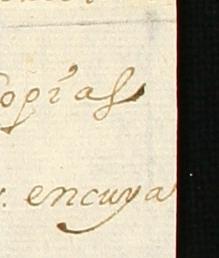 copias
. encuya